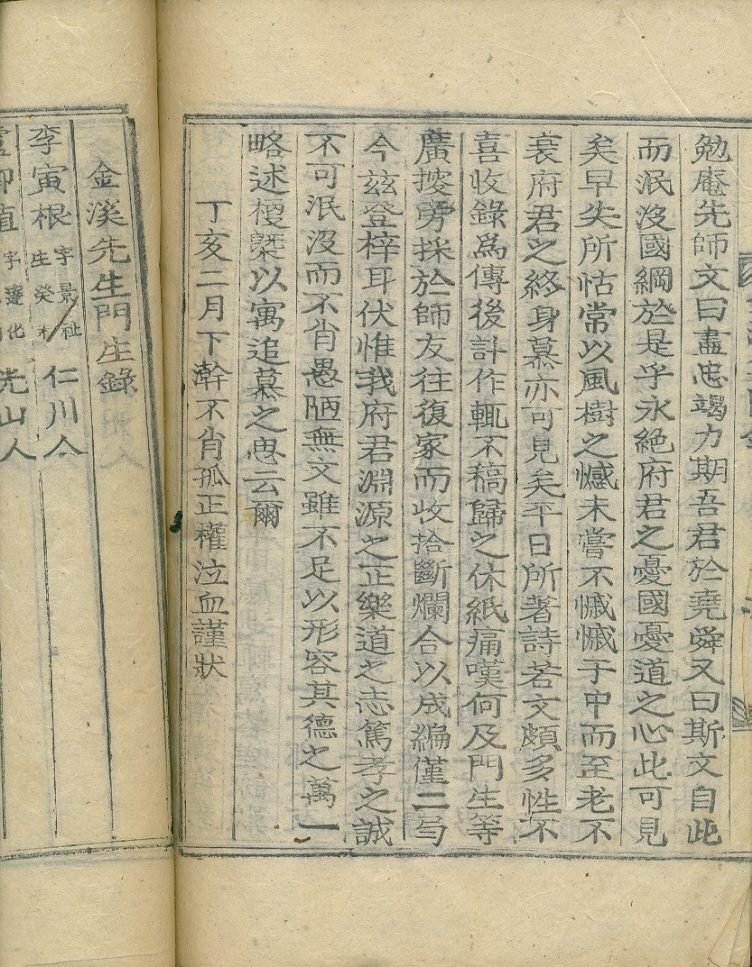 勉庵先師文曰盡忠竭力期吾君於堯舜又曰斯文自此
而泯沒國綱於是乎永絶府君之憂國憂道之心此可見
矣早失所怙常以風樹之憾未嘗不慽慽于中而至老不
衰府君之終身慕亦可見矣平日所著詩若文頗多性不
喜收錄爲傳後計作輒不稿歸之休紙痛嘆何及門生等
廣搜旁採於師友往復家而收拾斷爛合以成編僅二
今玆登梓耳伏惟我府君淵源之正樂道之志篤孝之誠
不可泯沒而不肖愚陋無文雖不足以形容其德之萬一
略述梗槩以寓追慕之思云爾
丁亥二月下澣不肖孤正權泣血謹狀
金溪先生門生錄
李寅根 字景祉 生癸未 仁川人
盧 植 字 化 光山人